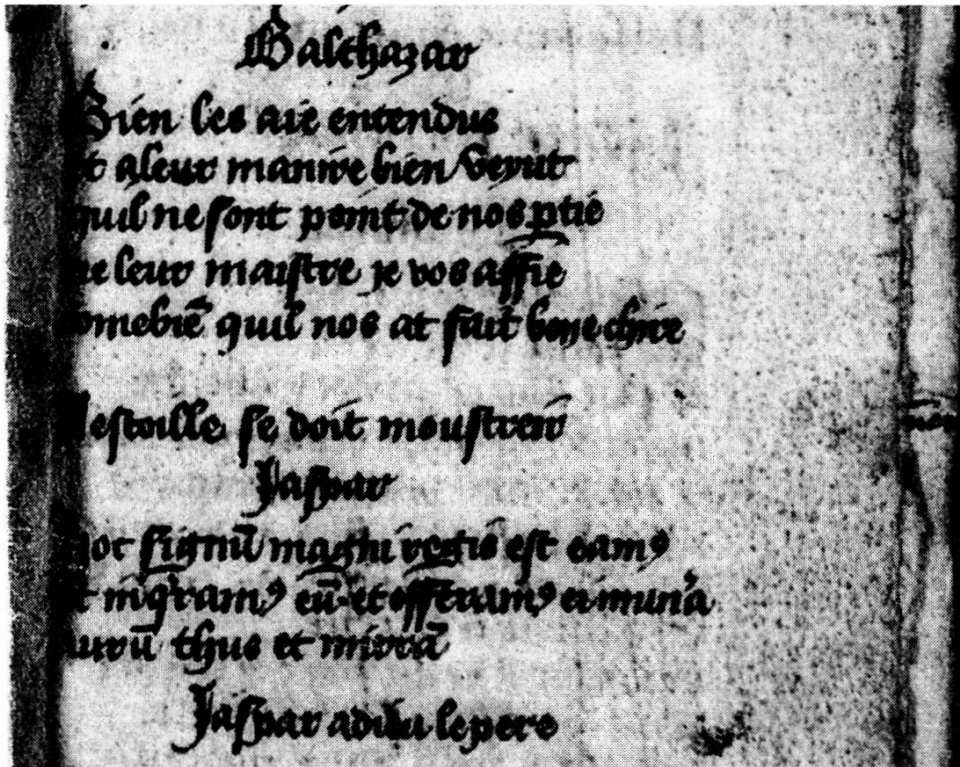 Balthazar
Bien les aie entendus
Et aleur manire bien veyut
quil ne sont point de nos ptie
ne leur maistre je vos affie
comebiē quil nos at fait bone chire
lestoille se doit moustreir
Jaspar
hoc signū magni regis est eamꝰ
Et inqͥramꝰ eū et offeramꝰ ei munͣa
aurū thus et mirrā
Jaspar a dieu le pere